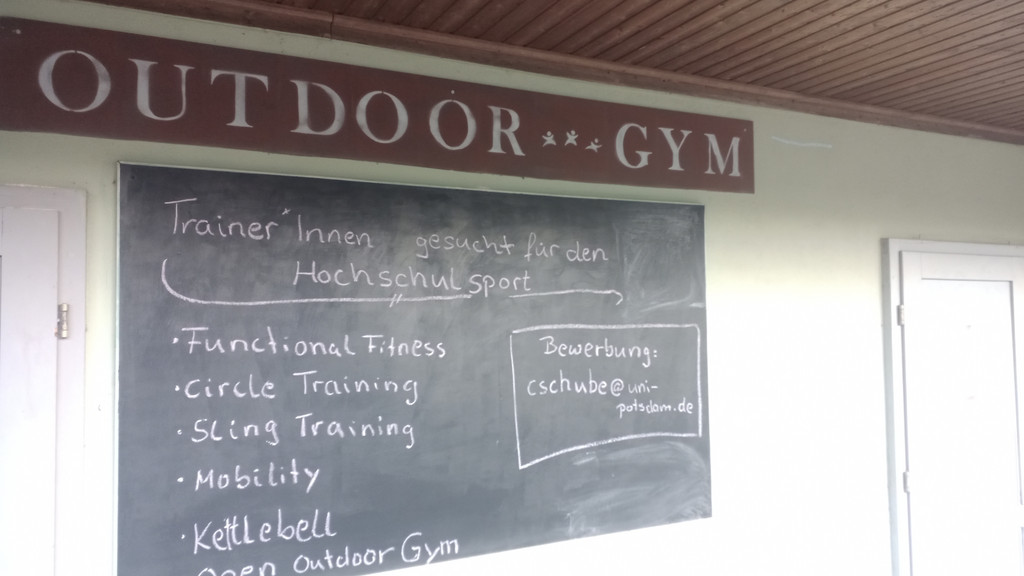 OUTDOOR GYM
Trainer*Innen gesucht für den
Hochschulsport
· Functional Fitness
· Circle Training
· Sling Training
· Mobility
· Kettlebell
Open Outdoor Gym
Bewerbung:
cschube@uni-
potsdam.de